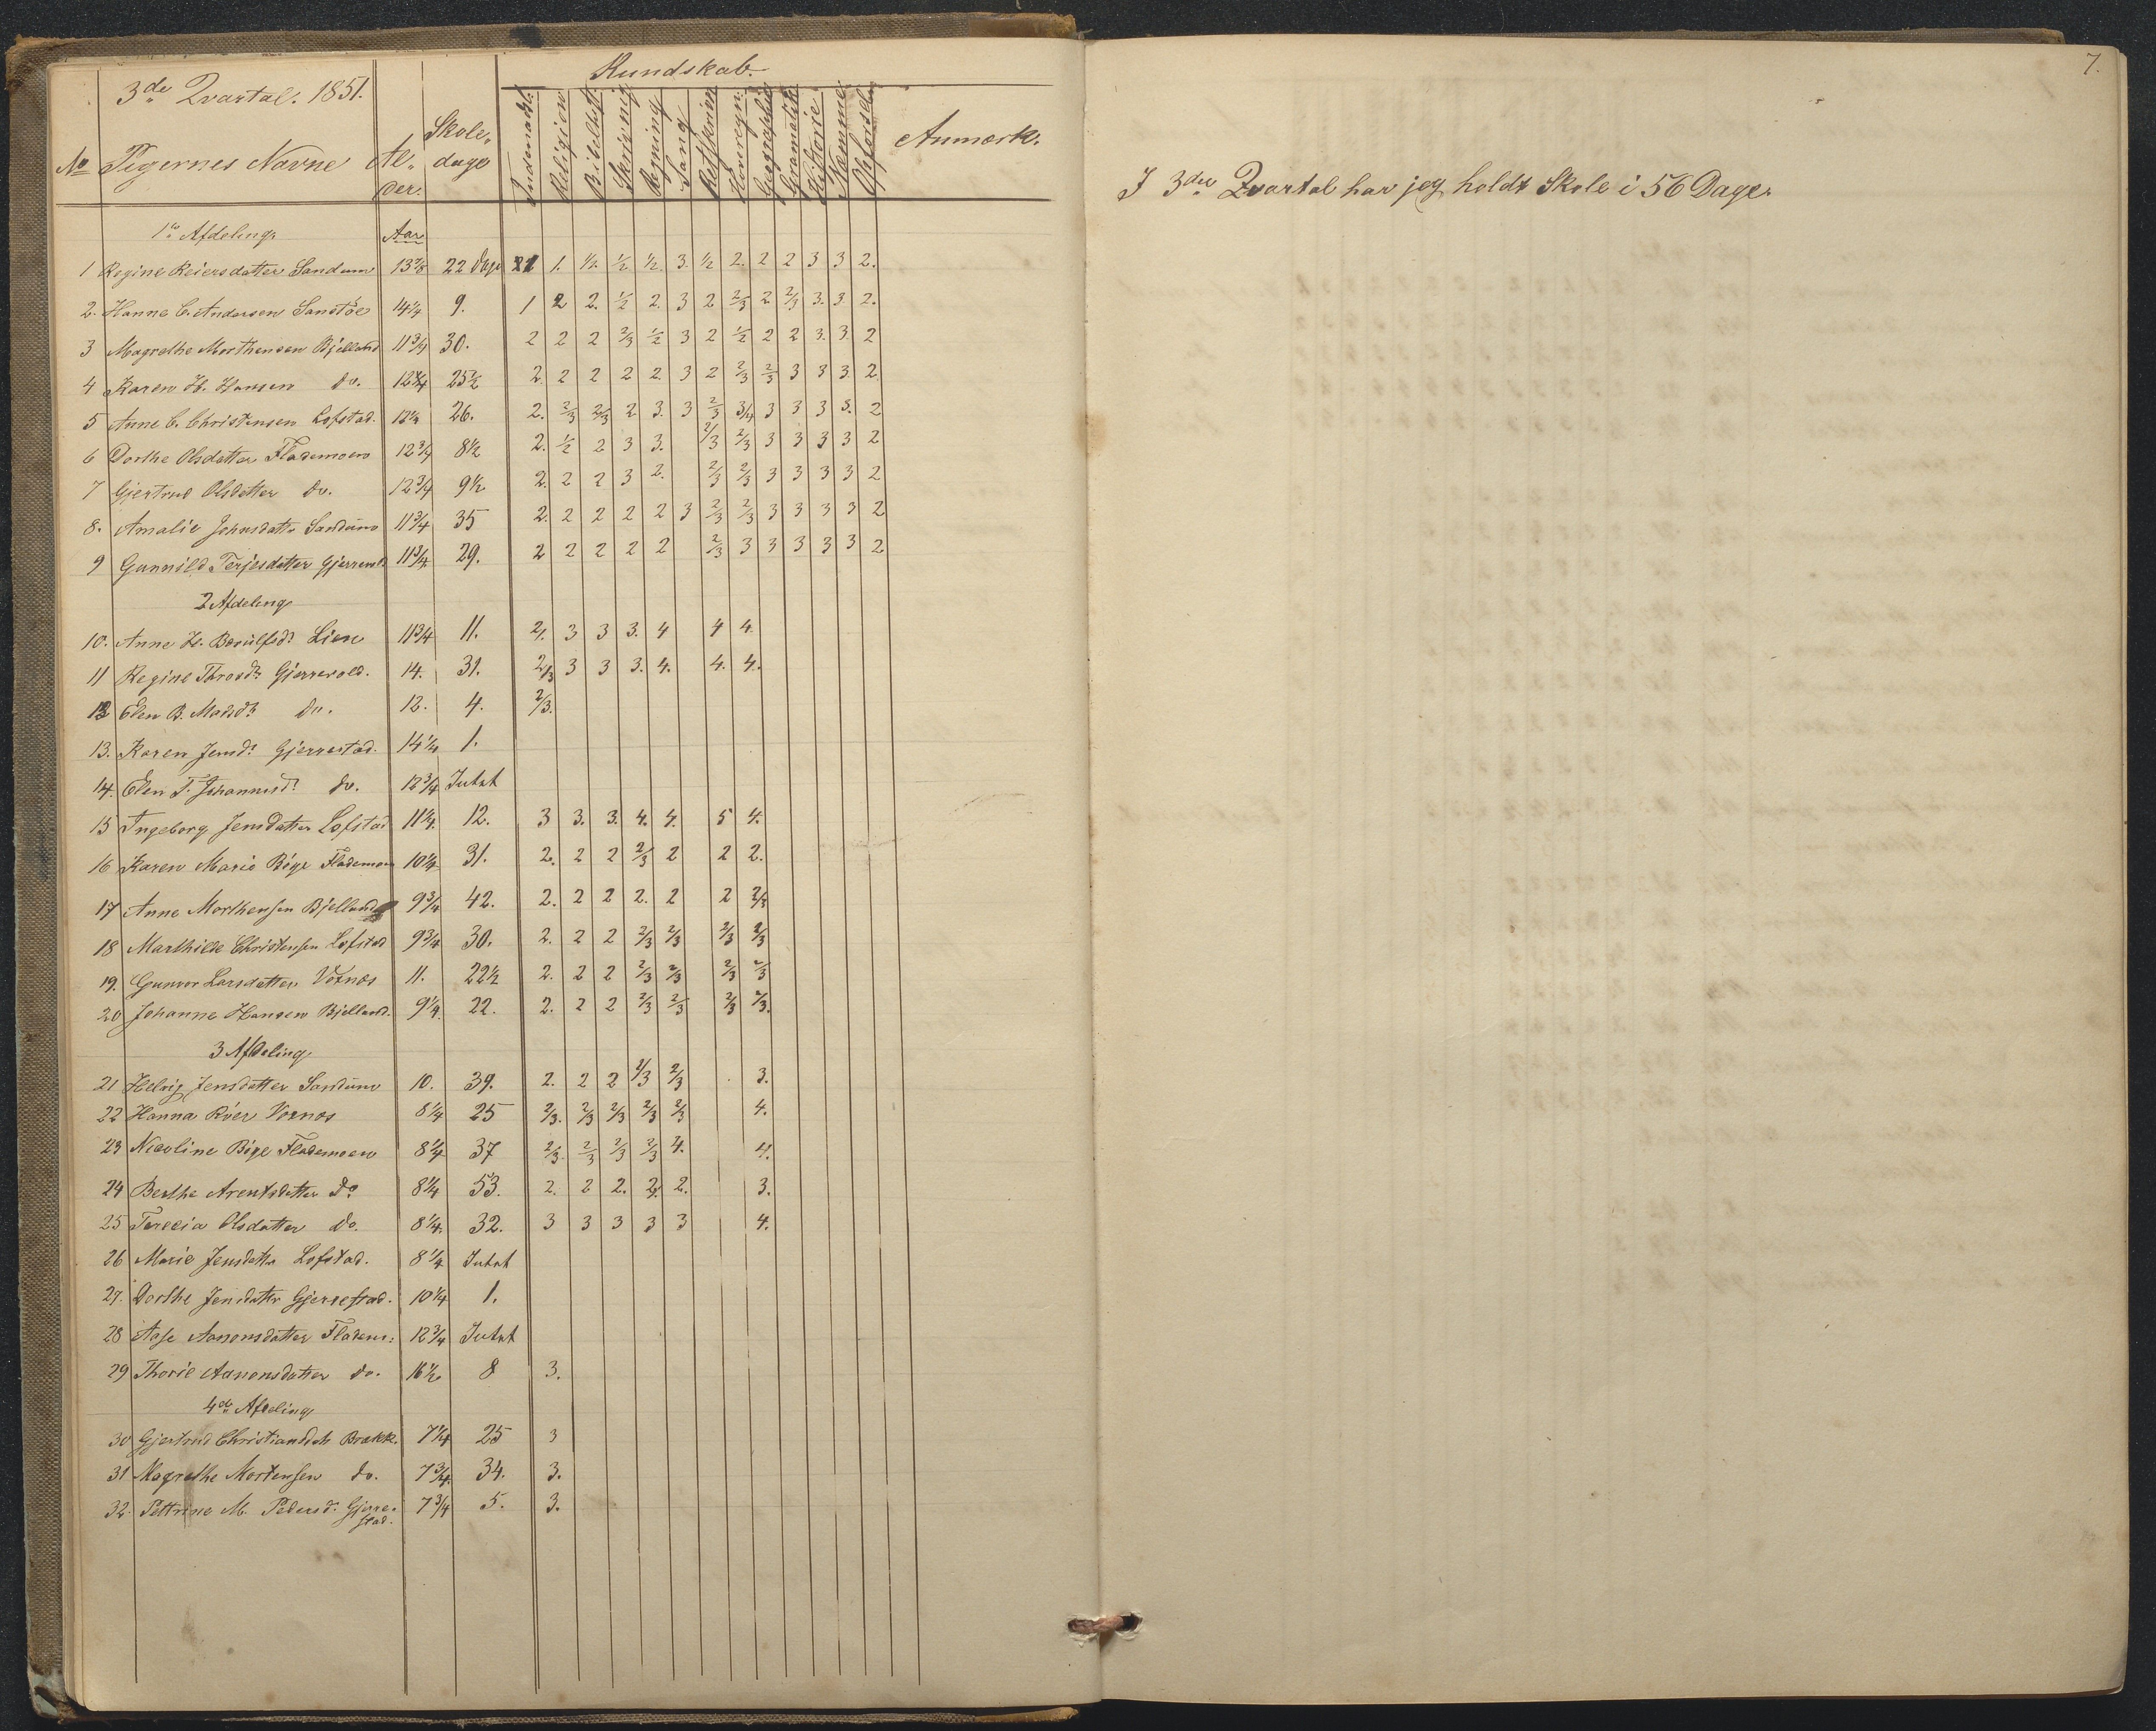 3de Qvartal. 1851.
Kundskab.
No Pigernes Navne Al-der. Skole-dage Indenadl. Religion Bibelhist. Skrivnig Regning Sang Retskriv. Hoveregn. Geographie Gramatik Historie Opførsel Anmærk.
1te Afdeling. Aar
1 Regine Reiersdatter Sandum 13 7/8 22 Dage 1 1. 1/2. 1/2 1/2. 3. 1/2 2. 2 2 3 3 2.
2. Hanne C. Andersen Sanstöe 14 1/4 9. 1 2 2. 1/2 2. 3 2 2/3 2 2/3 3. 3. 2.
3 Magrethe Morthensen Bjelland 11 3/4 30. 2 2 2 2/3 1/2 3 2 1/2 2 2 3. 3. 2
4 Karen H. Hansen do. 12 3/4 25 1/2 2. 2 2 2 2. 3 2 2/3 2/3 3 3 3. 2.
5 Anne C. Christensen Lofstad. 26. 2. 2/3 2/3 2 3. 3 2/3 3/4 3 3 3 3. 2
6 Dorthe Olsdatter Flademoen 12 3/4 8 1/2 2. 1/2 2 3 3. 2/3 2/3 3 3 3 3 2
7 Gjertrud Olsdatter do. 12 3/4 9 1/2 2. 2 2 3 2. 2/3 2/3 3 3 3 3 2
8. Amalie Johnsdatter Sandum 11 3/4 35 2. 2 2 2 2 3 2/3 2/3 3 3 3 3 2
9 Gunnild Terjesdatter Gjerrevold 11 3/4 29. 2 2 2 2 2 2/3 3 3 3 3 3 2
2 Afdeling
10. Anne H. Bærulfsdr Lien 11 3/4 11. 2/. 3 3 3. 4 4 4.
11 Regine Throsdr Gjerrevold. 14. 31. 2/3 3 3 3. 4. 4. 4.
12 Elen B. Madsdr do. 12. 4. 2/3.
13. Karen Jensdr Gjerrestad. 14 1/2 1.
14. Elen T. Johannesdr do. 12 3/4 Intet
15 Ingeborg Jensdatter Lofstad 11 1/4. 12. 3 3. 3. 4. 4. 5 4.
16 Karen Marie Böge Flademoen 10 1/4 31. 2. 2 2 2/3 2 2 2.
17 Anne Morthensen Bjelland 9 3/4 42. 2. 2 2 2. 2 2 2/3
18 Marthilde Christensen Lofstad 9 3/4 30. 2. 2 2 2/3 2/3 2/3 2/3
19. Gunvor Larsdatter Voxnæs 11. 22 1/2 2. 2 2 2/3 2/3 2/3 2/3
20 Johanne Hansen Bjelland. 9 1/4. 22. 2. 2 2 2/3 2/3 2/3 2/3.
3 Afdeling
21 Helvig Jensdatter Sandum 10. 39. 2. 2 2 2/3 2/3 3.
22 Hanna Röer Voxnæs 8 1/4 25 2/3. 2/3 2/3 2/3 2/3 4.
23 Nicoline Böge Flademoen 8 1/4 37 2/3. 2/3 2/3 2/3 4. 4.
24 Berthe Arentsdatter Do 8 1/4 53. 2. 2 2. 2/. 2. 3.
25 Terecia Olsdatter do. 8 1/4. 32. 3 3 3 3 3 4.
26 Marie Jensdatter Lofstad. 8 1/4 Intet
27. Dorthe Jensdatter Gjerrestad. 10 1/4 1.
28 Aase Aanonsdatter Fladem: 12 3/4 Intet
29 Thorie Aanonsdatter do. 16 1/2 8 3.
4de Afdeling
30 Gjertrud Christiansdatr Brækk. 7 1/4 25 3
31 Magrethe Mortensen do. 7 3/4. 34. 3.
32. Pettrine M. Pedersdr. Gjerre-stad. 7 3/4 5. 3.
7.
I 3die Qvartal har jeg holdt Skole i 56 Dage.